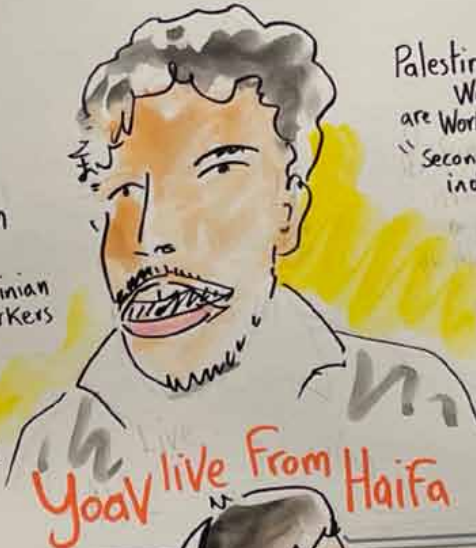 Palestin
W
are Wor
" Secon
inc
n
inian
rkers
Live
Yoav live From HaiFa